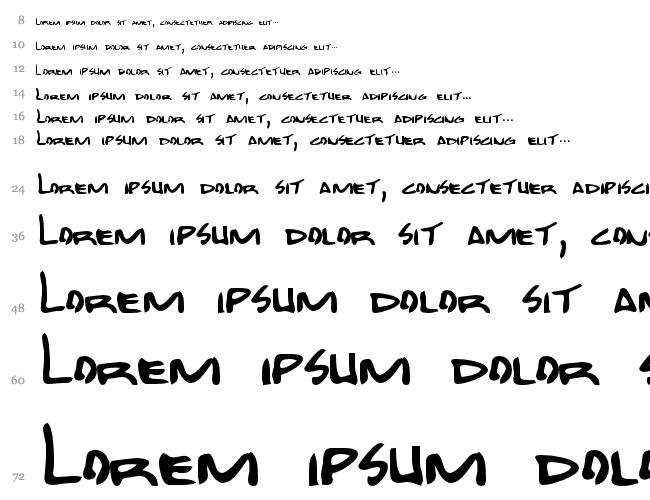 8 Lorem ipsum dolor sit amet, consectetuer adipiscing elit...
10 Lorem ipsum dolor sit amet, consectetuer adipiscing elit...
12 Lorem ipsum dolor sit amet, consectetuer adipiscing elit...
14 Lorem ipsum dolor sit amet, consectetuer adipiscing elit...
16 Lorem ipsum dolor sit amet, consectetuer adipiscing elit...
18 Lorem ipsum dolor sit amet, consectetuer adipiscing elit...
24 Lorem ipsum dolor sit amet, consectetuer adipisci
36 Lorem ipsum dolor sit amet, con
48 Lorem ipsum dolor sit am
60 Lorem ipsum dolor
72 Lorem ipsum dolo